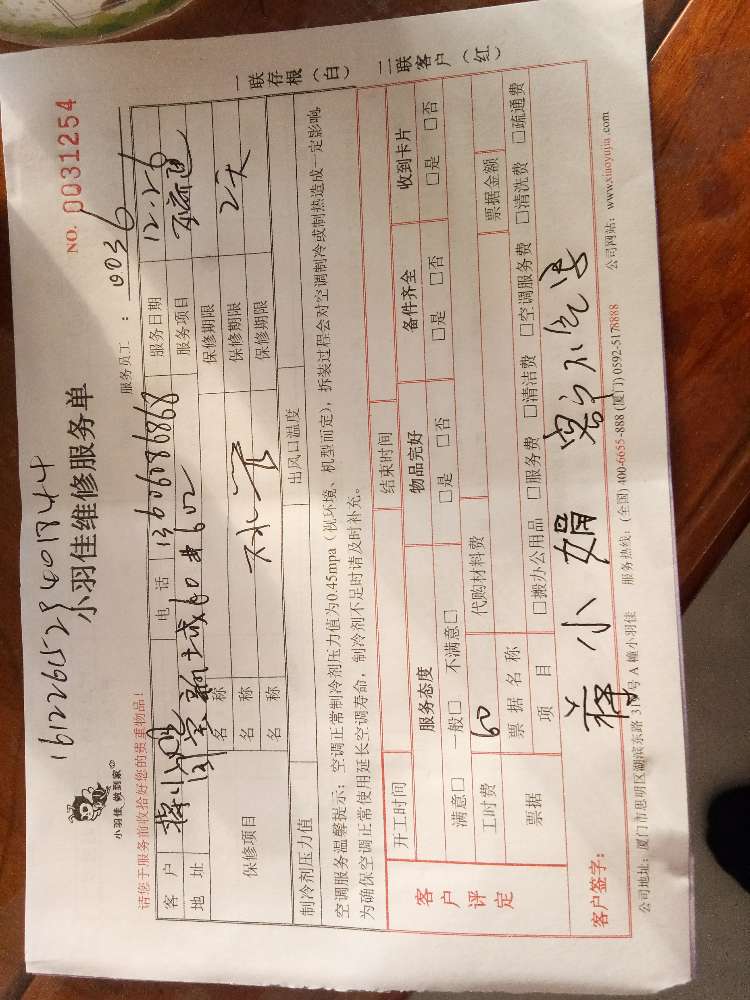 1612261523401844
小羽佳 做到家
小羽佳维修服务单
NO. 0031254
请您于服务前收拾好您的贵重物品!
服务员工: 0036
客户 蒋小娟 电话 13606086868 服务日期 12.26
地址 60#602 服务项目
保修项目 名称 保修期限
名称 保修期限 2天
名称 保修期限
制冷剂压力值 出风口温度
空调服务温馨提示:空调正常制冷剂压力值为0.45mpa(视环境、机型而定),拆装过程会对空调制冷或制热造成一定影响,
为确保空调正常使用延长空调寿命,制冷剂不足时请及时补充。
一联存根(白) 二联客户(红)
客户评定
开工时间 结束时间
服务态度 物品完好 备件齐全 收到卡片
满意□ 一般□ 不满意□ □是 □否 □是 □否 □是 □否
工时费 60 代购材料费
票据 票据名称 票据金额
项目 □搬办公用品 □服务费 □清洁费 □空调服务费 □清洗费 □疏通费
客户签字: 蒋小娟
公司地址:厦门市思明区湖滨东路31号A幢小羽佳 服务热线:(全国)400-6655-888(厦门)0592-5178888 公司网站:www.xiaoyujia.com